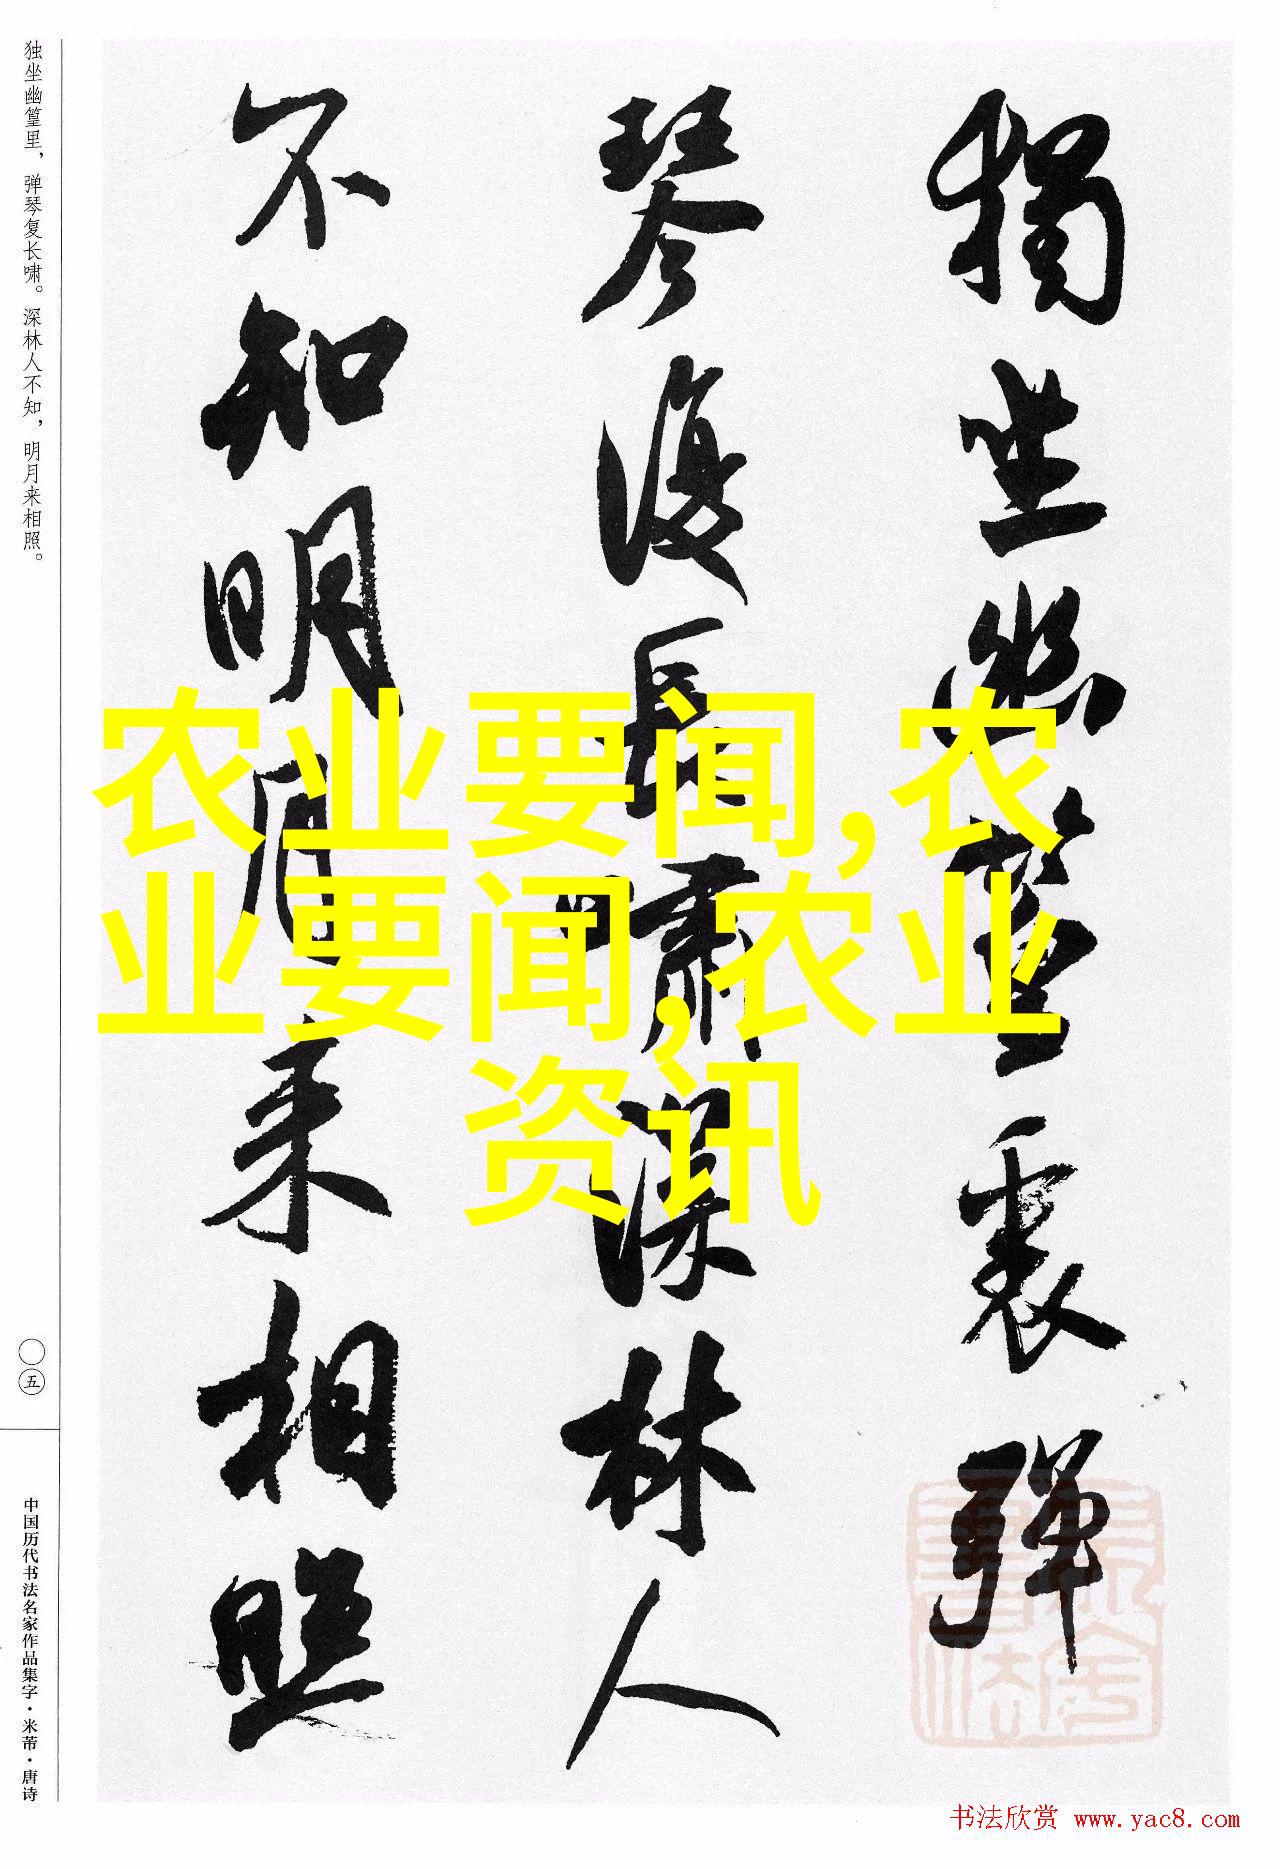 獨坐幽篁裏彈
琴復長嘯深林人
不知明月来相照
独坐幽篁里，弹琴复长啸。深林人不知，明月来相照。
〇五
中国历代书法名家作品集字·米芾·唐诗
农业要闻,农
业要闻,农业
资讯
书法欣赏 www.yac8.com